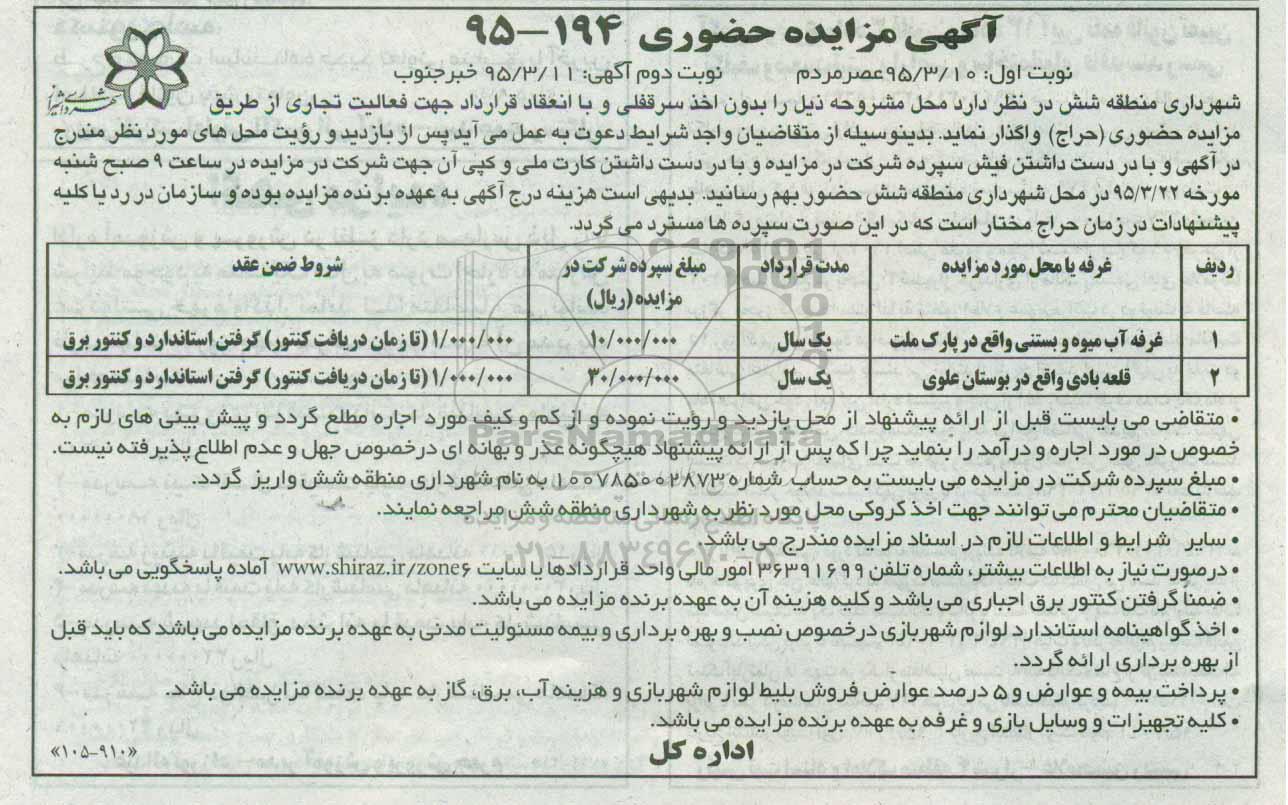 آگهی مزایده حضوری ۱۹۴–۹۵
نوبت اول: ۹۵/۳/۱۰ عصر مردم نوبت دوم آگهی: ۹۵/۳/۱۱ خبر جنوب
شهرداری شیراز
شهرداری منطقه شش در نظر دارد محل مشروحه ذیل را بدون اخذ سرقفلی و با انعقاد قرارداد جهت فعالیت تجاری از طریق
مزایده حضوری (حراج) واگذار نماید. بدینوسیله از متقاضیان واجد شرایط دعوت به عمل می آید پس از بازدید و رؤیت محل های مورد نظر مندرج
در آگهی و با در دست داشتن فیش سپرده شرکت در مزایده و با در دست داشتن کارت ملی و کپی آن جهت شرکت در مزایده در ساعت ۹ صبح شنبه
مورخه ۹۵/۳/۲۲ در محل شهرداری منطقه شش حضور بهم رسانید. بدیهی است هزینه درج آگهی به عهده برنده مزایده بوده و سازمان در رد یا کلیه
پیشنهادات در زمان حراج مختار است که در این صورت سپرده ها مسترد می گردد.
ردیف غرفه یا محل مورد مزایده مدت قرارداد مبلغ سپرده شرکت در مزایده (ریال) شروط ضمن عقد
۱ غرفه آب میوه و بستنی واقع در پارک ملت یک سال ۱۰/۰۰۰/۰۰۰ ۱/۰۰۰/۰۰۰ (تا زمان دریافت کنتور) گرفتن استاندارد و کنتور برق
۲ قلعه بادی واقع در بوستان علوی یک سال ۳۰/۰۰۰/۰۰۰ ۱/۰۰۰/۰۰۰ (تا زمان دریافت کنتور) گرفتن استاندارد و کنتور برق
• متقاضی می بایست قبل از ارائه پیشنهاد از محل بازدید و رؤیت نموده و از کم و کیف مورد اجاره مطلع گردد و پیش بینی های لازم به
خصوص در مورد اجاره و درآمد را بنماید چرا که پس از ارائه پیشنهاد هیچگونه عذر و بهانه ای درخصوص جهل و عدم اطلاع پذیرفته نیست.
• مبلغ سپرده شرکت در مزایده می بایست به حساب شماره ۱۰۰۷۸۵۰۰۲۸۷۳ به نام شهرداری منطقه شش واریز گردد.
• متقاضیان محترم می توانند جهت اخذ کروکی محل مورد نظر به شهرداری منطقه شش مراجعه نمایند.
• سایر شرایط و اطلاعات لازم در اسناد مزایده مندرج می باشد.
• درصورت نیاز به اطلاعات بیشتر، شماره تلفن ۳۶۳۹۱۶۹۹ امور مالی واحد قراردادها یا سایت www.shiraz.ir/zone۶ آماده پاسخگویی می باشد.
• ضمناً گرفتن کنتور برق اجباری می باشد و کلیه هزینه آن به عهده برنده مزایده می باشد.
• اخذ گواهینامه استاندارد لوازم شهربازی درخصوص نصب و بهره برداری و بیمه مسئولیت مدنی به عهده برنده مزایده می باشد که باید قبل
از بهره برداری ارائه گردد.
• پرداخت بیمه و عوارض و ۵ درصد عوارض فروش بلیط لوازم شهربازی و هزینه آب، برق، گاز به عهده برنده مزایده می باشد.
• کلیه تجهیزات و وسایل بازی و غرفه به عهده برنده مزایده می باشد.
اداره کل
«۱۰۵-۹۱۰»
ParsNamadData
۰۲۱-۸۸۳۴۹۶۷۰-۵